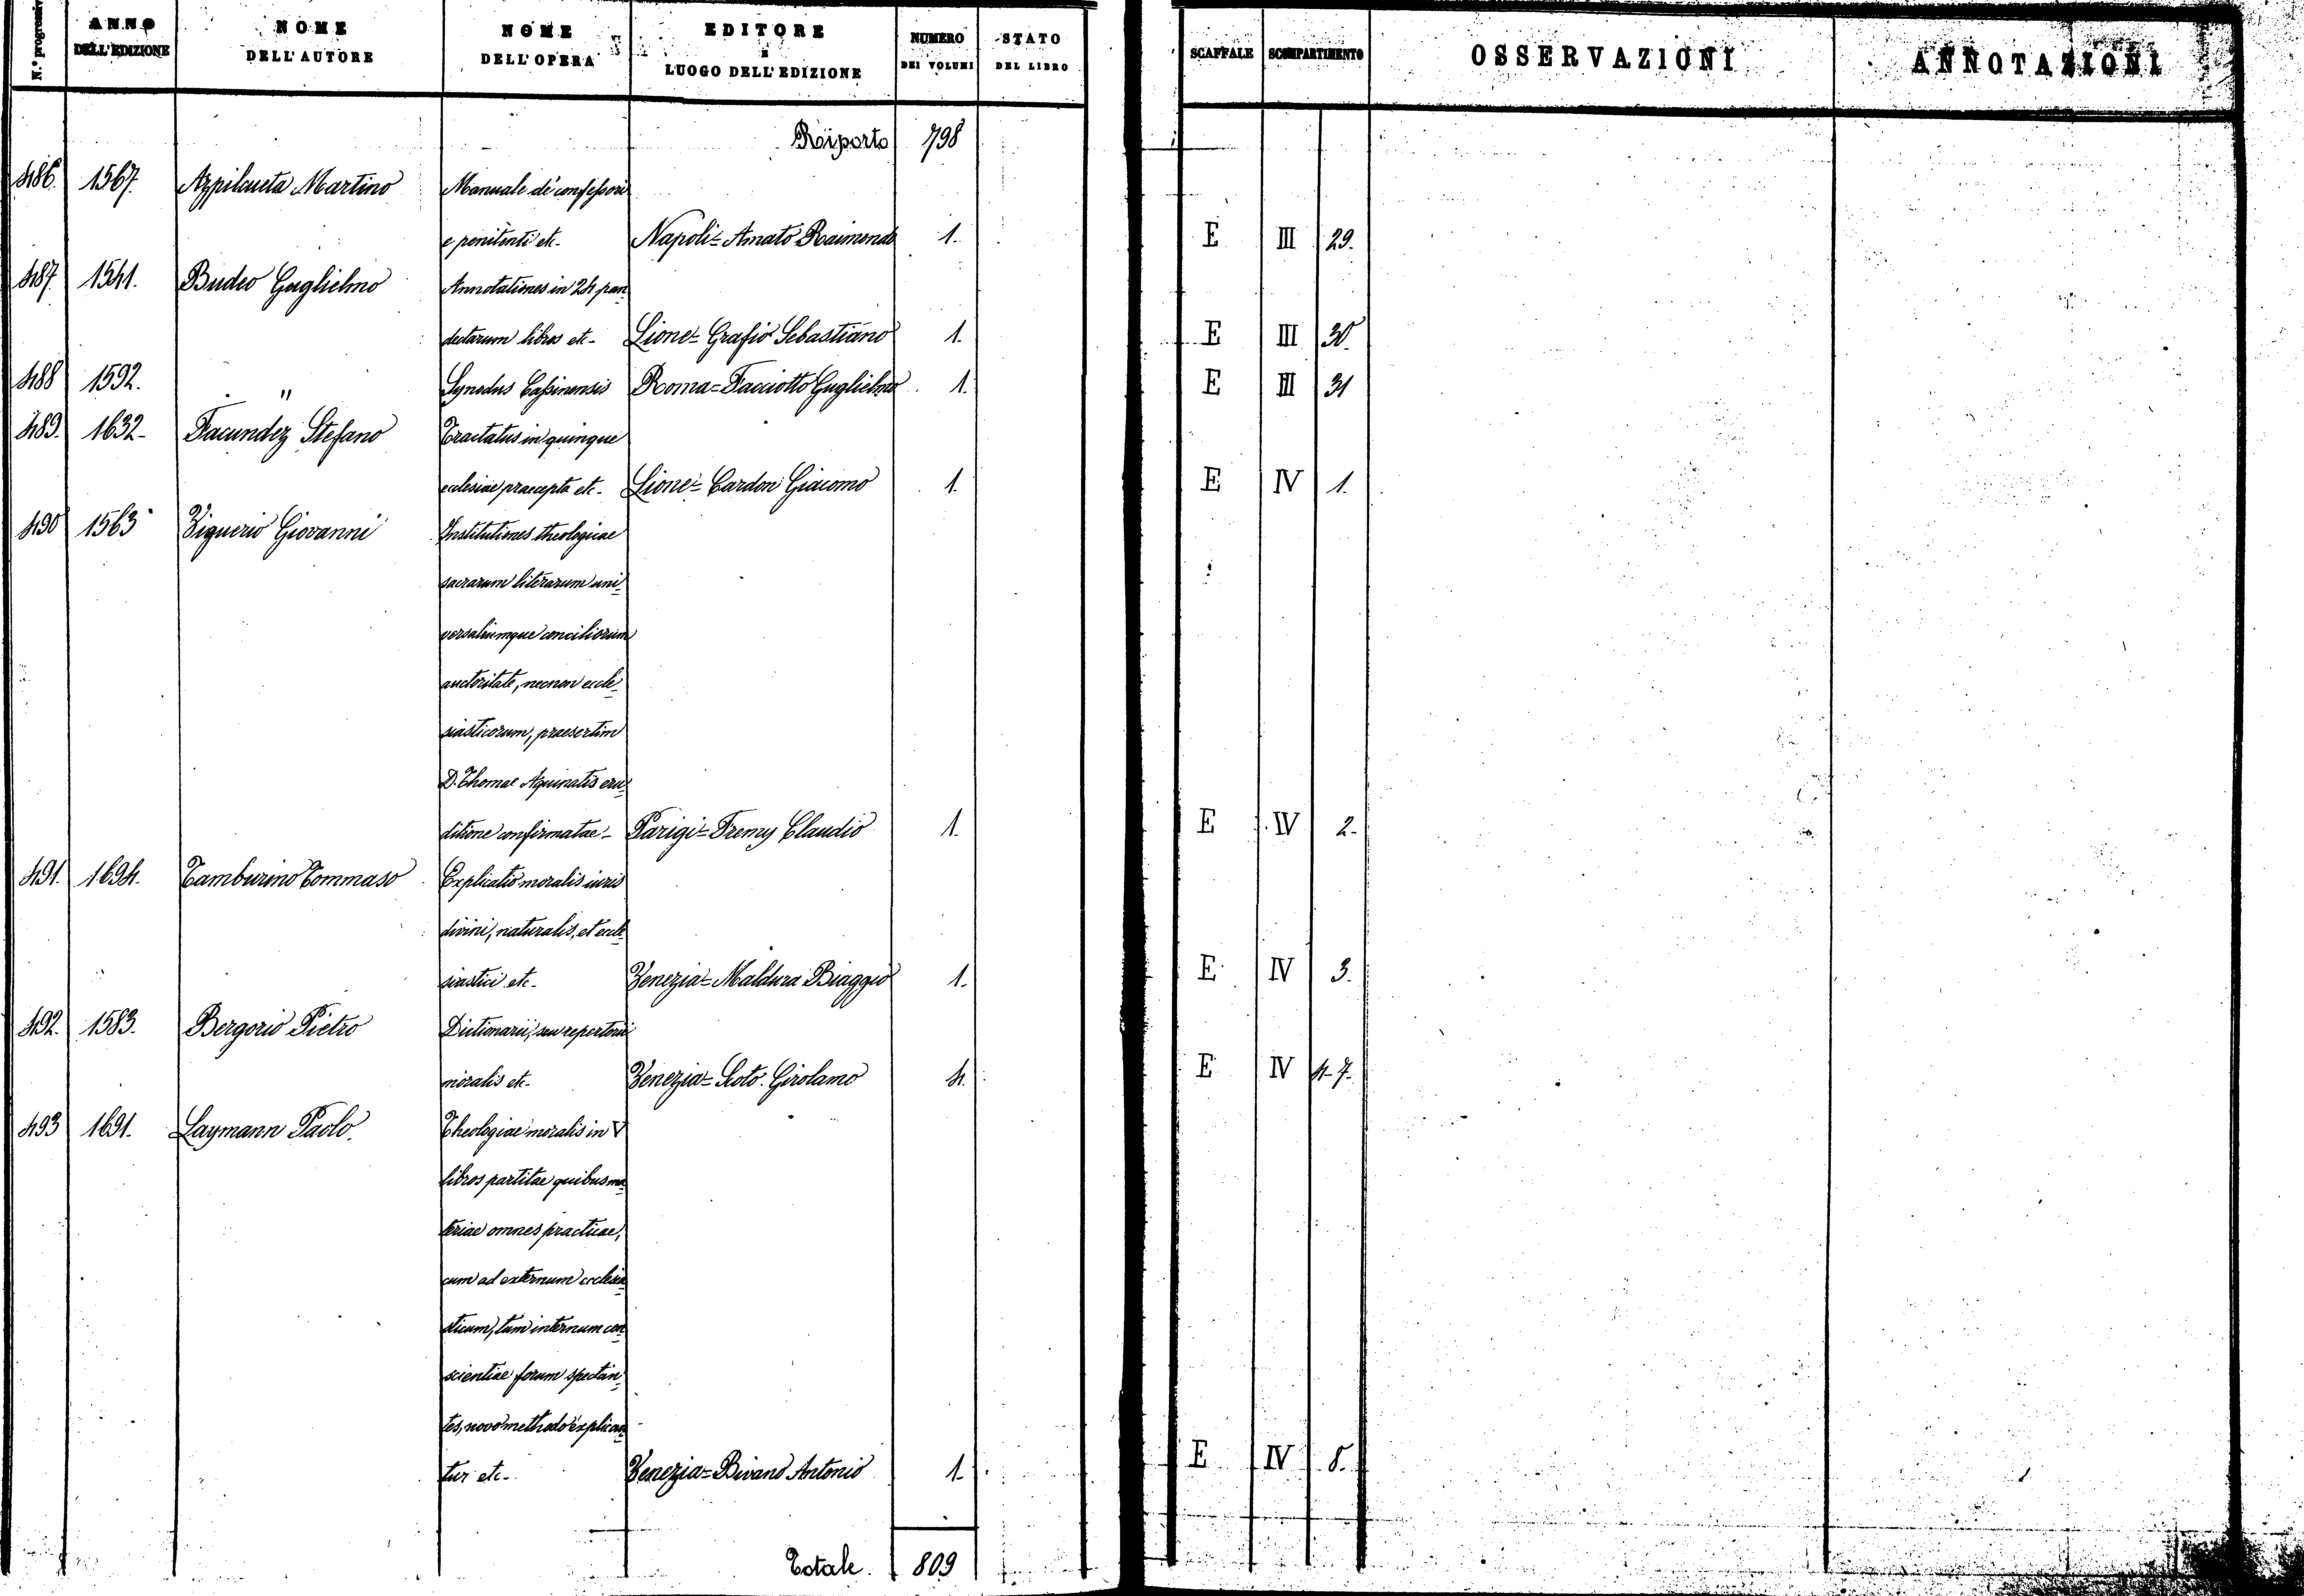 N.° progressivo ANNO DELL'EDIZIONE NOME DELL'AUTORE NOME DELL'OPERA EDITORE E LUOGO DELL'EDIZIONE NUMERO DEI VOLUMI STATO DEL LIBRO SCAFFALE SCOMPARTIMENTO OSSERVAZIONI ANNOTAZIONI
Riporto 798
486. 1567. Azpilcueta Martino Manuale de' confessori
e penitenti etc. Napoli = Amato Raimondo 1. E III 29.
487. 1541. Budeo Guglielmo Annotationes in 24 pan-
dectarum libros etc. Lione = Grafio Sebastiano 1. E III 30.
488 1592. " Synodus Cassinensis Roma = Facciotto Guglielmo 1. E III 31
489. 1632. Facundez Stefano Tractatus in quinque
ecclesiae praecepta etc. Lione = Cardon Giacomo 1. E IV 1.
490 1563 Viguerio Giovanni Institutiones theologicae
sacrarum literarum uni-
versaliumque conciliorum
auctoritate, necnon eccle-
siasticorum, praesertim
D. Thomae Aquinatis eru-
ditione confirmatae. Parigi = Fremy Claudio 1. E IV 2.
491. 1694. Tamburino Tommaso Explicatio moralis iuris
divini, naturalis, et eccle-
siastici etc. Venezia = Maldura Biaggio 1. E IV 3.
492. 1583. Bergorio Pietro Dictionarii, seu repertorii
moralis etc. Venezia = Scoto Girolamo 4. E IV 4-7.
493 1691. Laymann Paolo. Theologiae moralis in V
libros partitae quibus ma-
teriae omnes practicae,
cum ad externum ecclesia-
sticum, tum internum con-
scientiae forum spectan-
tes, novo methodo explican-
tur etc. Venezia = Bivano Antonio 1. E IV 8.
Totale. 809